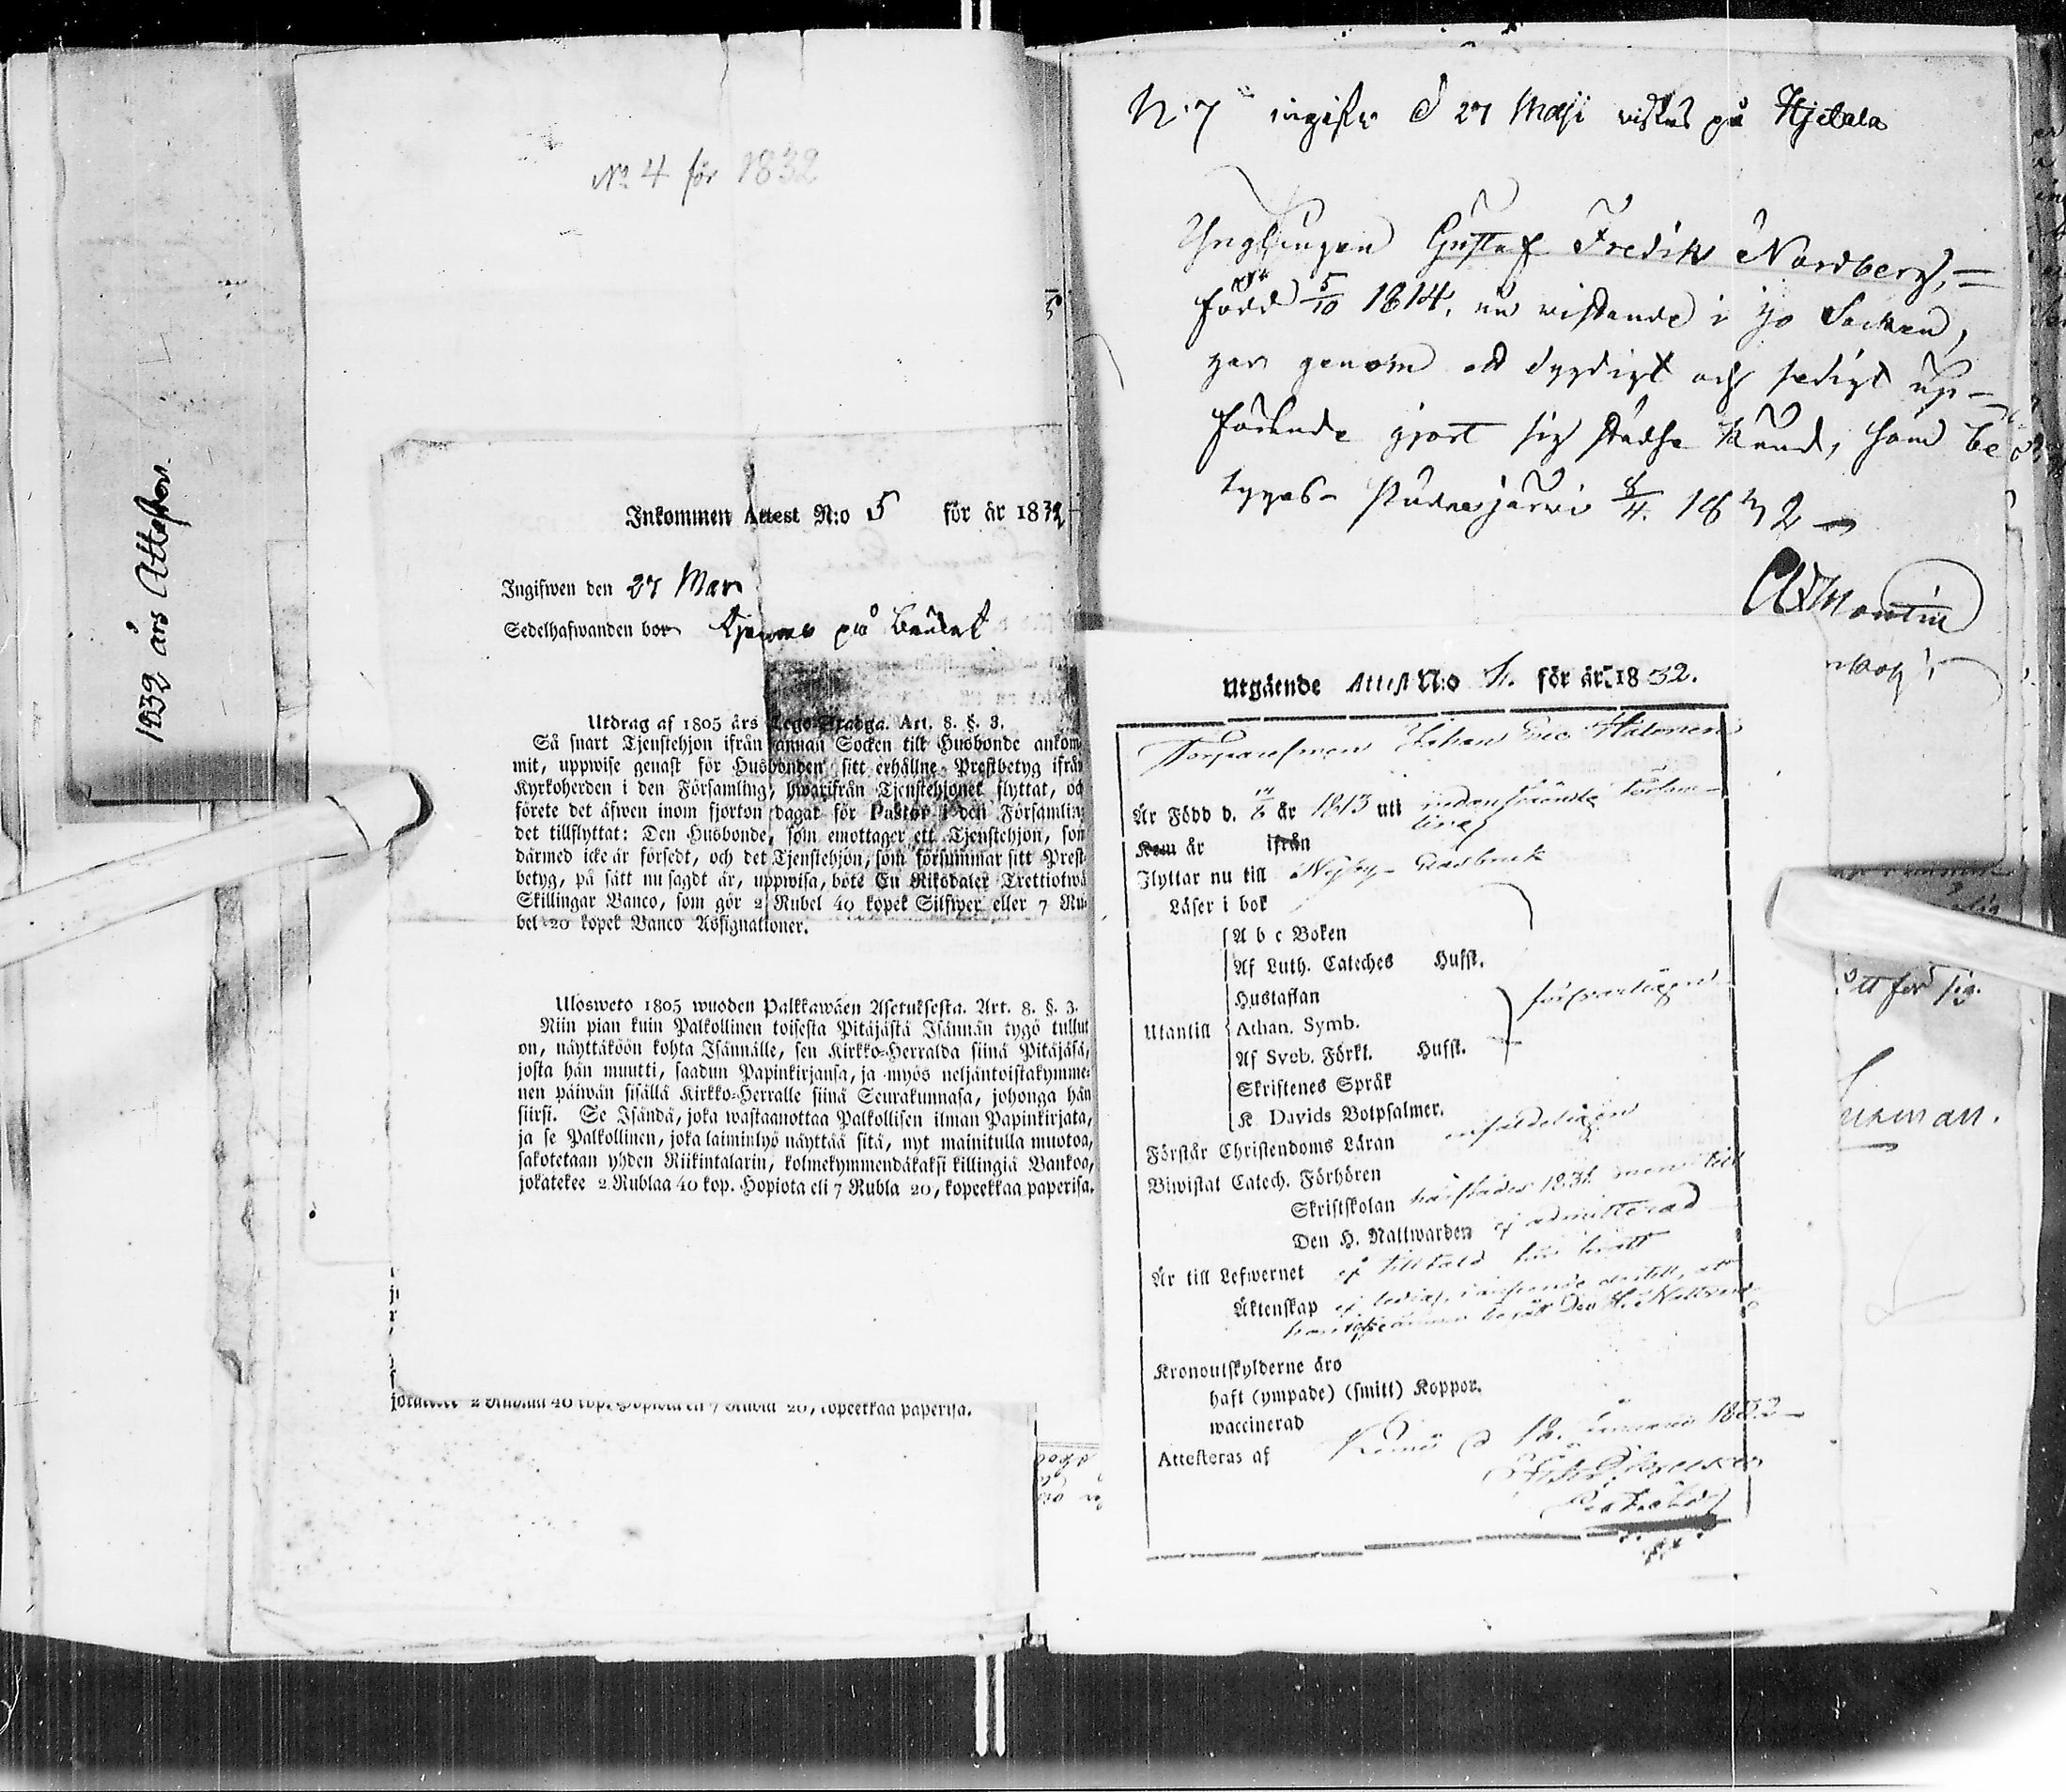 1832 års Attester.
No 4 för 1832
Inkommen Attest N:o 5 för år 1832
Ingifwen den 27 Mars
Sedelhafwanden bor på
Utdrag af 1805 års Lego-Stadga. Art. 8. §. 3.
Så snart Tjenstehjon ifrån annan Socken till Husbonde ankom-
mit, uppwise genast för Husbonden sitt erhållne Prestbetyg ifrån
Kyrkoherden i den Församling, hwarifrån Tjenstehjonet flyttat, och
förete det äfwen inom fjorton dagar för Pastor i den Församling
det tillflyttat: Den Husbonde, som emottager ett Tjenstehjon, som
därmed icke är försedt, och det Tjenstehjon, som försummar sitt Prest-
betyg, på sätt nu sagdt är, uppwisa, böte En Riksdaler Trettiotwå
Skillingar Banco, som gör 2 Rubel 40 kopek Silfwer eller 7 Ru-
bel 20 kopek Banco Assignationer.
Ulosweto 1805 wuoden Palkkawäen Asetuksesta. Art. 8. §. 3.
Niin pian kuin Palkollinen toisesta Pitäjästä Isännän tygö tullut
on, näyttäköön kohta Isännälle, sen Kirkko-Herralda siinä Pitäjäsä,
josta hän muutti, saadun Papinkirjansa, ja myös neljäntoistakymme-
nen päiwän sisällä Kirkko-Herralle siinä Seurakunnasa, johonga hän
siirsi. Se Isändä, joka wastaanottaa Palkollisen ilman Papinkirjata,
ja se Palkollinen, joka laiminlyö näyttää sitä, nyt mainitulla muotoa,
sakotetaan yhden Riikintalarin, kolmekymmendäkaksi killingiä Bankoa,
jokatekee 2 Rublaa 40 kop. Hopiota eli 7 Rubla 20, kopeekkaa paperisa.
jokatekee 2 Rublaa 40 kop. Hopiota eli 7 Rubla 20, kopeekkaa paperisa.
N:7 ingifw d 27 Maji vistas på Hjetala
Ynglingen Gustaf Fredik Nordberg,
född 5/10 1814, nu vistande i Ijo Socken,
har genom ett dygdigt och sedigt up-
förande gjort sig städse känd, som be-
tygas Pudasjärwi 8/4 1832
Montin
Utgående Attest N:o 1. för år 1832.
Torparesonen Johan Eric Halonen
Är Född d. år 1813 uti nedanstående Försam-
ling
Kom år ifrån
Flyttar nu till Nyby Glasbruk
Läser i bok
A b c Boken
Af Luth. Cateches Hufst.
Hustaflan
Utantill Athan. Symb. försvarligen
Af Sveb. Förkl. Hufst.
Skriftenes Språk
K. Davids Botpsalmer.
Förstår Christendoms Läran enfaldeligen
Biwistat Catech. Förhören
Skriftskolan härstädes 1831 men till
Den H. Nattwarden ej admitterad
Är till Lefwernet ej tilltald för brott
Äktenskap ej ledig, i anseende dertill, att
han icke ännu begått Den H. Nattvard
Kronoutskylderne äro
haft (ympade) (smitt) Koppor.
waccinerad
Attesteras af Kemi d 18. Januarii 1832
ett för sig.